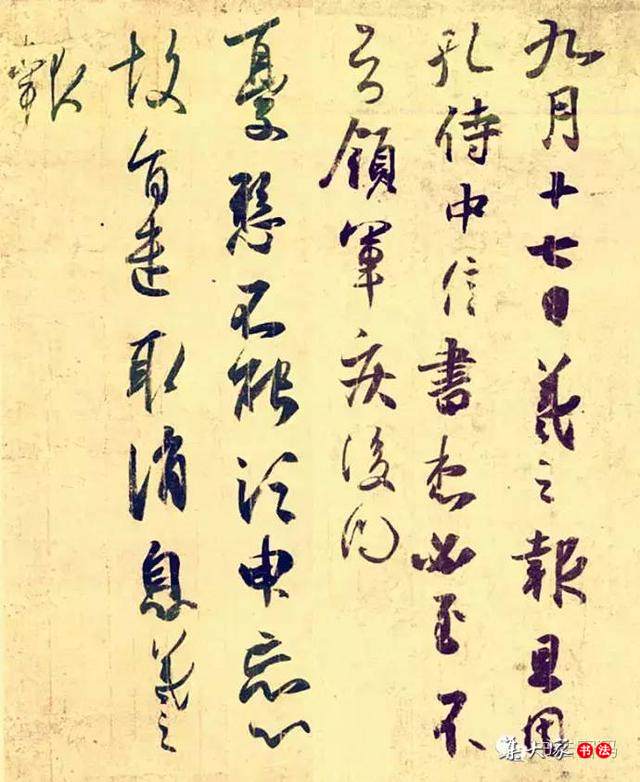 九月十七日羲之報且因
孔侍中信書想必至不
知領軍疾後問
憂懸不能須臾忘心
故旨遣取消息羲之
報
集大家书法